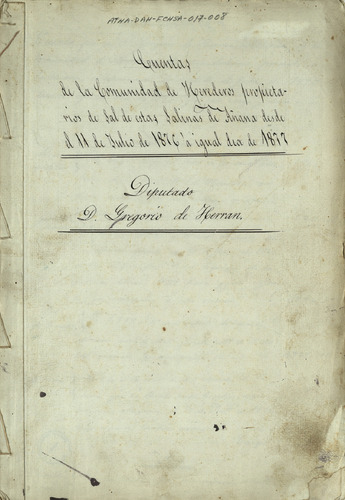 ATHA-DAH-FCHSA-017-008
Cuentas
de la Comunidad de Herederos propieta-
rios de Sal de estas Salinas de Añana desde
el 11 de Julio de 1876 a igual dia de 1877
Diputado
D. Gregorio de Herran.